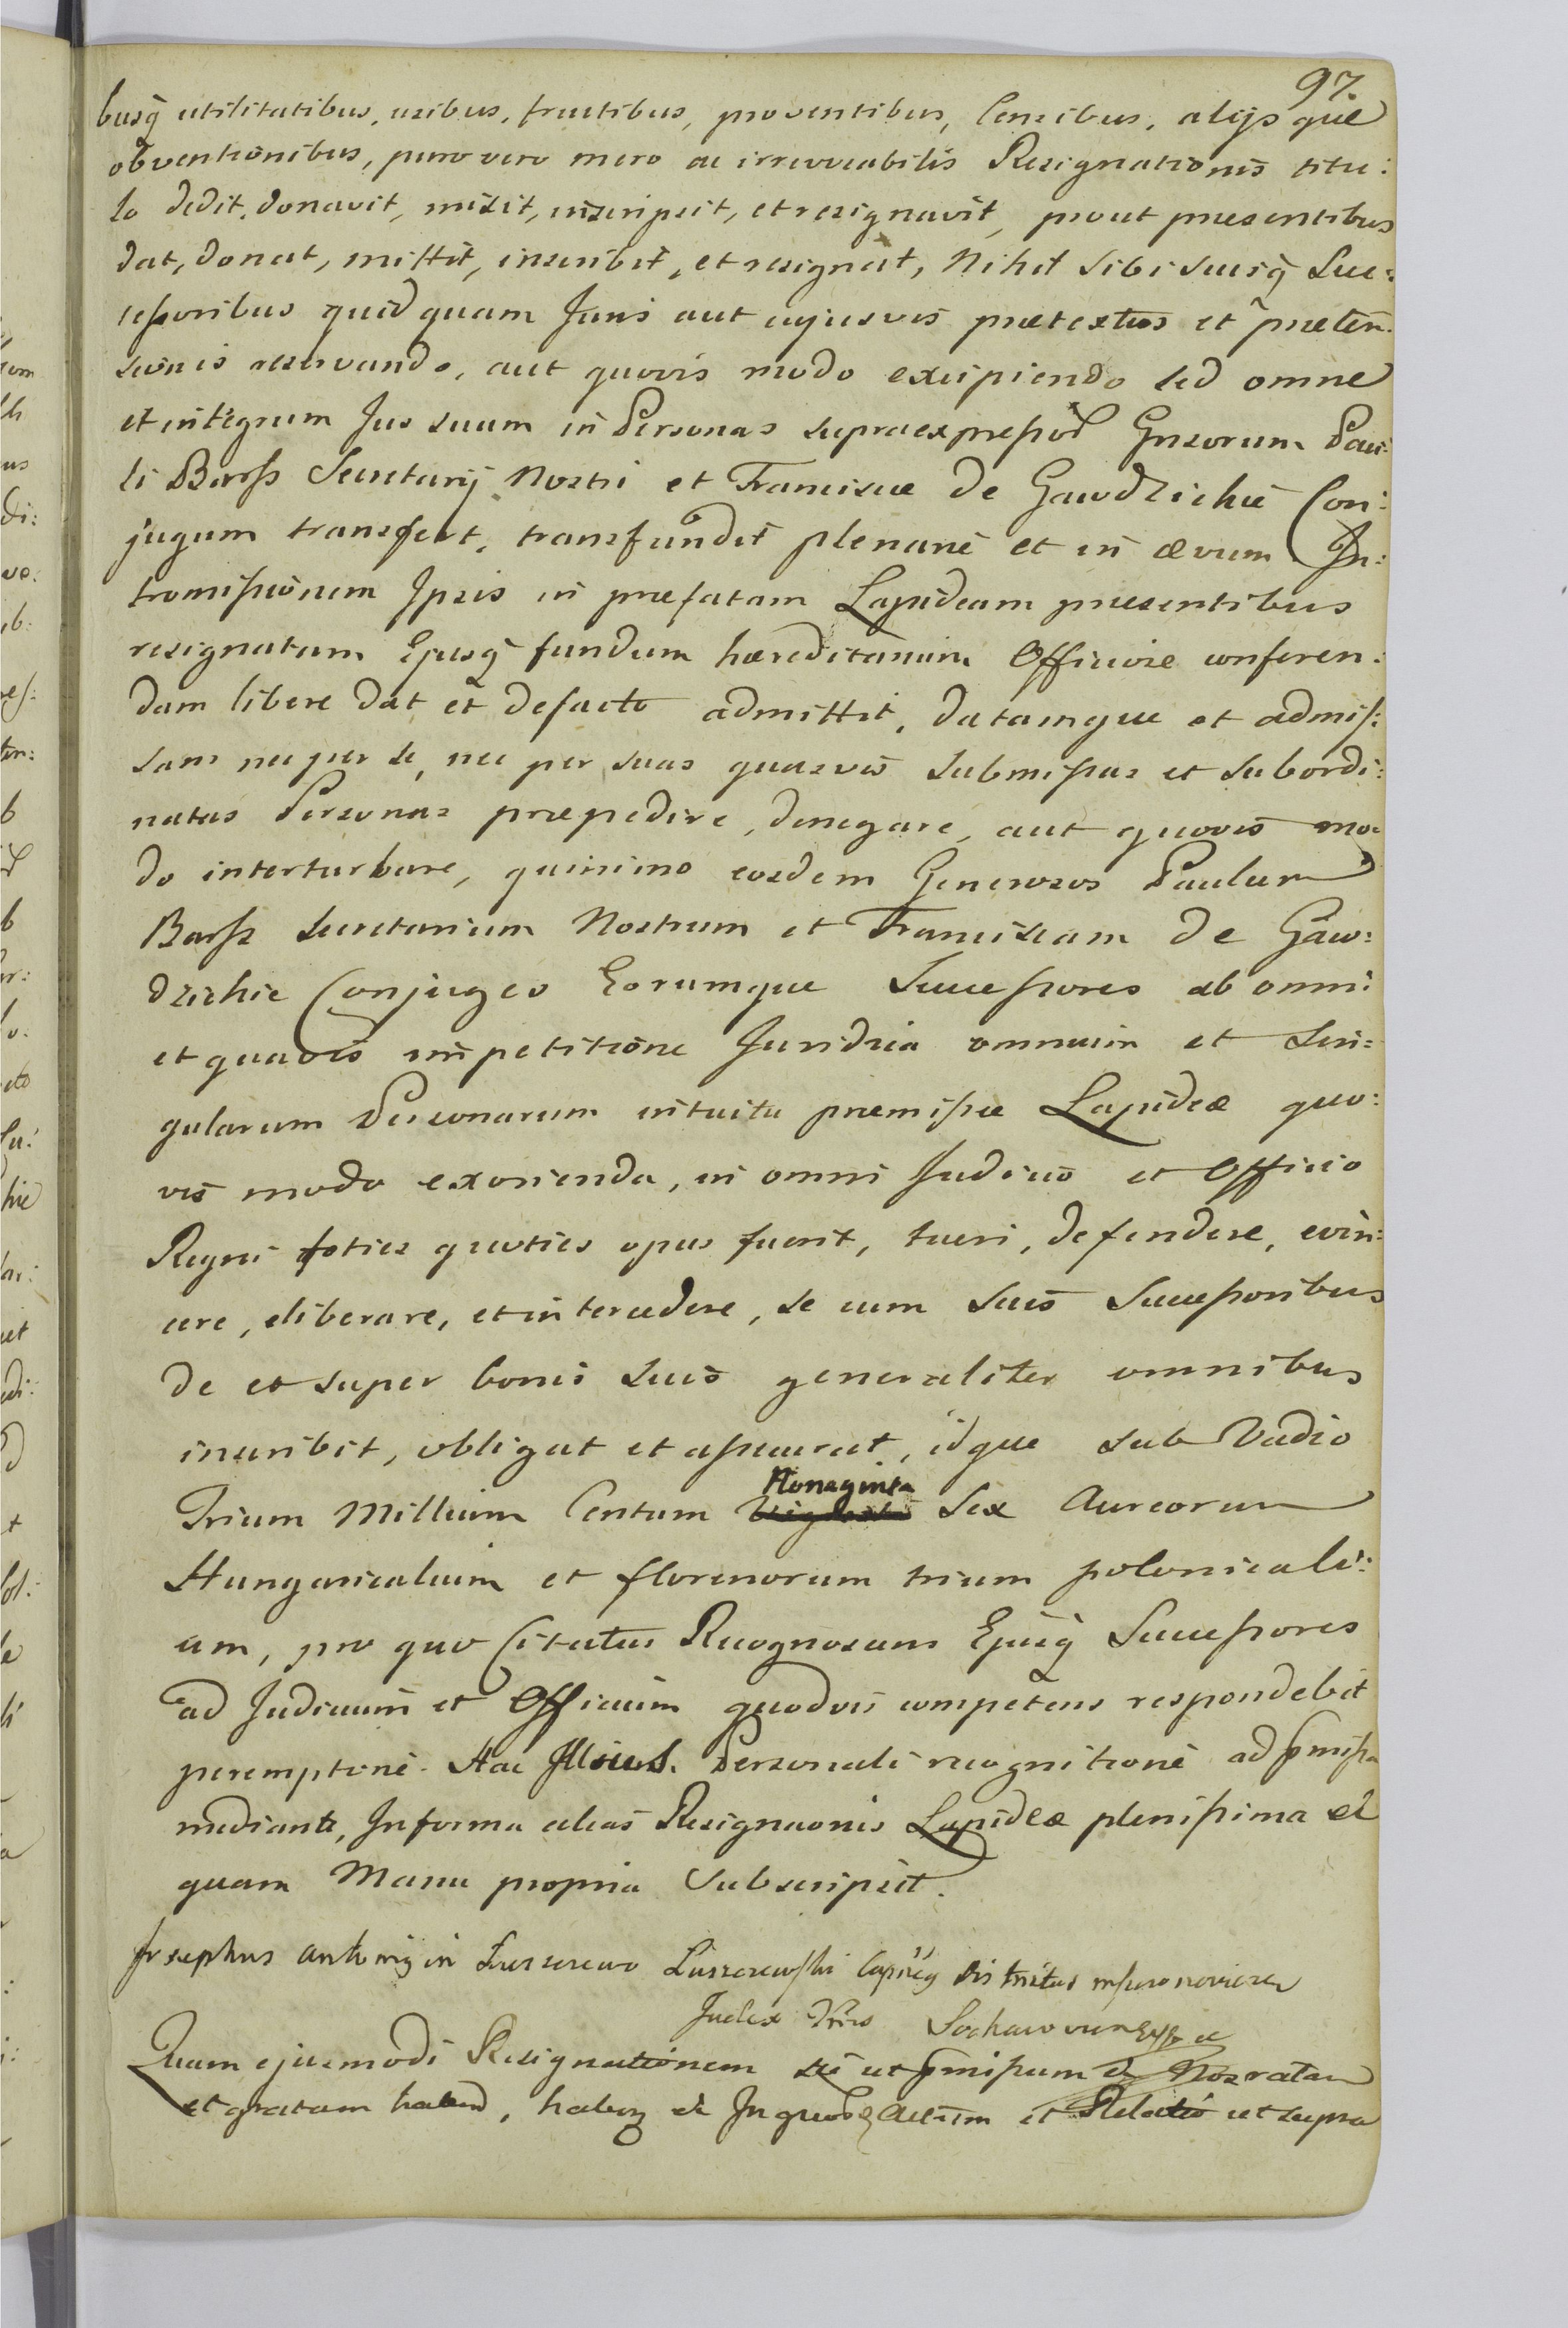 97.
busq̃ utilitatibus, usibus, fructibus, proventibus, Censibus, alijsque
obventionibus, puro vero mero ac irrevocabilis Resignationis titu:
lo dedit, donavit, misit, inscripsit, et resignavit, prout præsentibus
dat, donat, mittit, inscribit, et resignat, Nihil sibi suisq̃ Suc:
cessoribus quidquam Juris aut cujusvis prætextus et præten:
sionis reservando, aut quovis modo excipiendo sed omne
et integrum Jus suum in Personas supraexpressor Gnsorum Pau:
li Barss Secretarij Nostri et Franciscæ de Gawdzickie Con:
jugum transfert, transfundit plenarie et in ævum In:
tromissionem Ipsis in præfatam Lapideam præsentibus
resignatam Ejusq̃ fundum hæreditarium Officiose conferen:
dam libere dat et defacto admittit, datamque et admis:
sam nec per se, nec per suas quasvis submissas et subordi:
natas Personas præpedire, denegare, aut quovis mo:
do interturbare, quinimo eosdem Generosos Paulum
Barss Secretarium Nostrum et Franciscam de Gaw:
dzickie Conjuges Eorumque Successores ab omni
et quavis impetitione Juridica omnium et Sin:
gularum Personarum intuitu præmissæ Lapideæ quo:
vis modo exorienda, in omni Judicio et Officio
Regni toties quoties opus fuerit, tueri, defendere, evin:
cere, eliberare, et intercedere, se cum suis Successoribus
de et super bonis suis generaliter omnibus
inscribit, obligat et assecurat, idque sub Vadio
Nonaginta
Trium Millium Centum Sex Aureorum
Hungaricalium et florenorum trium polonicali:
um, pro quo Citatus Recognoscens Ejusq̃ Successores
ad Judicium et Officium quodvis competens respondebit
peremptorie. Hac Illius. Personali recognitione ad p̃missa
mediante, In forma alias Resignaonis Lapideæ plenissima et
quam Manu propria Subscripsit.
Josephus Antonig in Luszczewo Luszczewski
Judex Sochacovien
Quam ejusmodi Resignationem sic ut p̃missum e Nos ratam
et gratam habend, habuq et In quoq Actum et Relatio ut supra